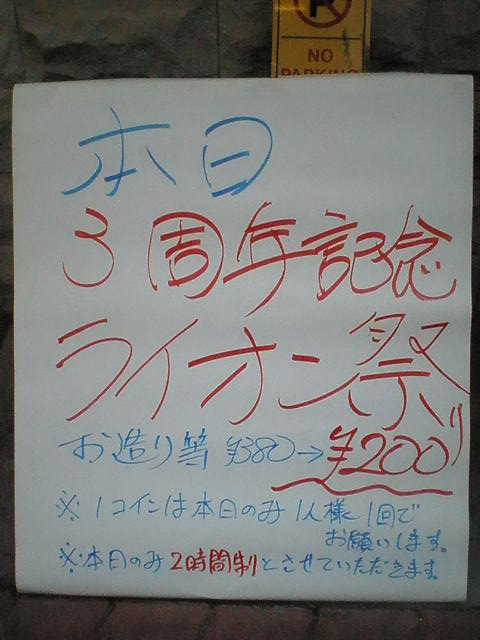 NO
PARKING
本日
3周年記念
ライオン祭り
お造り等 ¥380→¥200
※1コインは本日のみ1人様1回で
お願いします。
※本日のみ2時間制とさせていただきます。